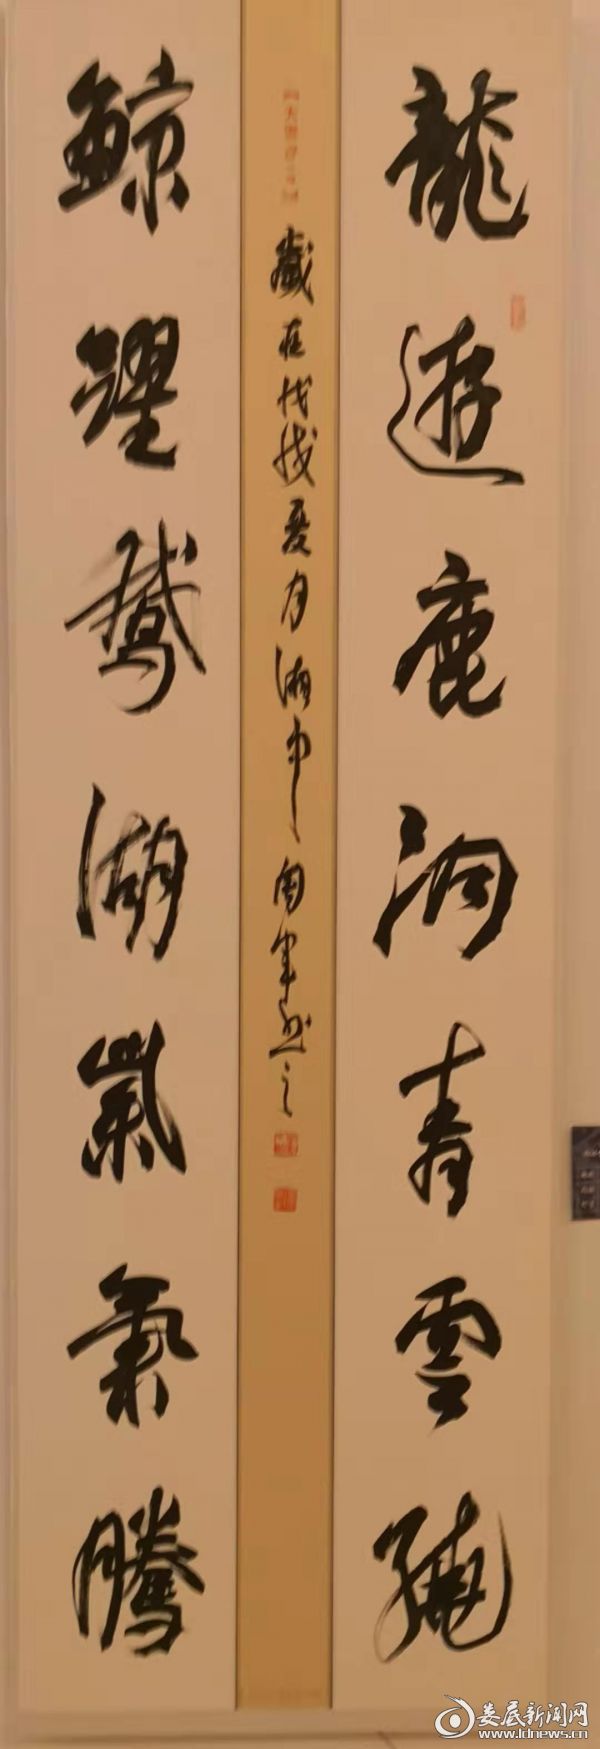 龍遊鹿洞青雲繞
鯨躍鵝湖紫氣騰
歲在戊戌夏月湘中
娄底新闻网
www.ldnews.cn